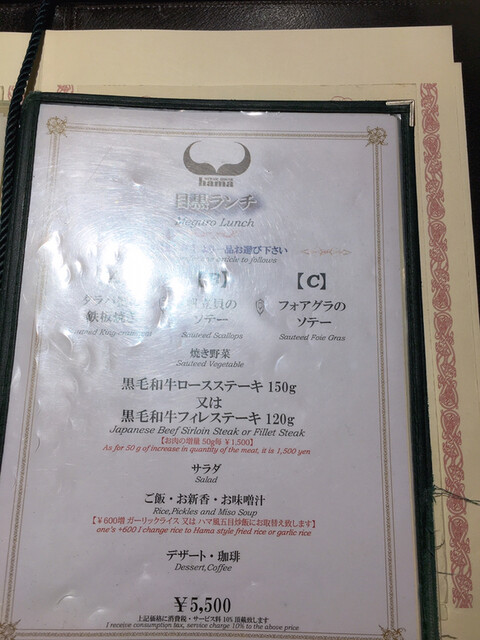 hama
目黒ランチ
Meguro Lunch
一品お選び下さい
article to follows
【B】 【C】
タラバ 貝の フォアグラの
鉄板焼き ソテー ソテー
Sauteed Scallops Sauteed Foie Gras
焼き野菜
Sauteed Vegetable
黒毛和牛ロースステーキ 150g
又は
黒毛和牛フィレステーキ 120g
Japanese Beef Sirloin Steak or Fillet Steak
【お肉の増量 50g毎 ¥1,500】
As for 50 g of increase in quantity of the meat, it is 1,500 yen
サラダ
Salad
ご飯・お新香・お味噌汁
Rice,Pickles and Miso Soup
【¥600増 ガーリックライス 又は ハマ風五目炒飯にお取替え致します】
one's +600 I change rice to Hama style fried rice or garlic rice
デザート・珈琲
Dessert,Coffee
¥5,500
上記価格に消費税・サービス料 10% 頂戴致します
I receive consumption tax, service charge 10% to the above price